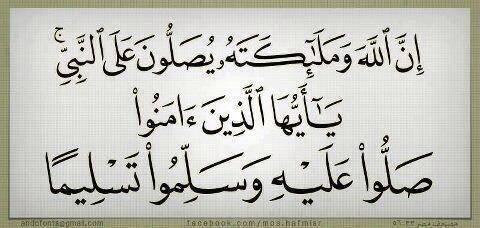 إِنَّ ٱللَّهَ وَمَلَـٰٓئِكَتَهُۥ يُصَلُّونَ عَلَى ٱلنَّبِىِّ ۚ
يَـٰٓأَيُّهَا ٱلَّذِينَ ءَامَنُوا۟
صَلُّوا۟ عَلَيْهِ وَسَلِّمُوا۟ تَسْلِيمًا
andofonts@gmail.com facebook.com/mos.hafmisr مصحف مصر ٥٦:٣٣